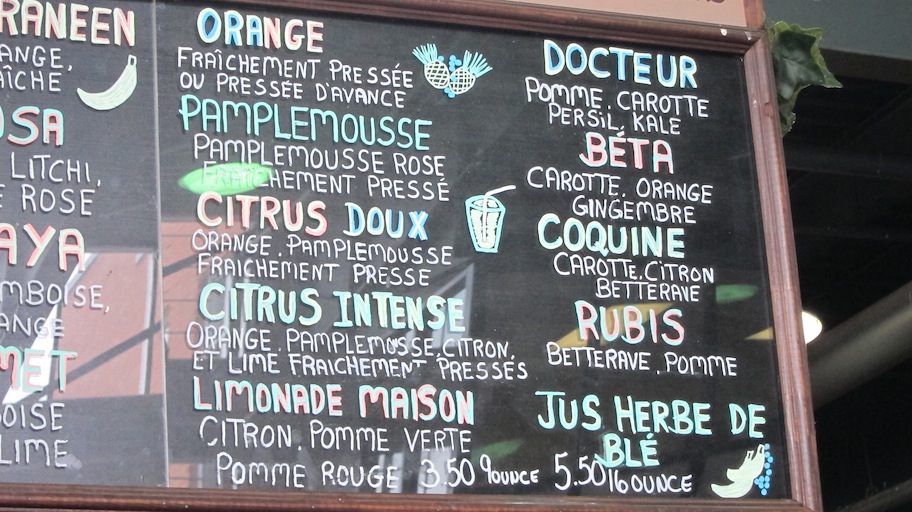 RANEEN
ANGE,
AÎCHE
OSA
LITCHI,
E ROSE
AYA
MBOISE,
ANGE
MET
BOISE
LIME
ORANGE
FRAÎCHEMENT PRESSÉE
OU PRESSÉE D'AVANCE
PAMPLEMOUSSE
PAMPLEMOUSSE ROSE
FRAÎCHEMENT PRESSÉ
CITRUS DOUX
ORANGE. PAMPLEMOUSSE
FRAICHEMENT PRESSE
CITRUS INTENSE
ORANGE. PAMPLEMOUSSE. CITRON.
ET LIME FRAICHEMENT PRESSÉS
LIMONADE MAISON
CITRON. POMME VERTE
POMME ROUGE 3.50 9OUNCE 5.50 16 OUNCE
DOCTEUR
POMME. CAROTTE
PERSIL. KALE
BÉTA
CAROTTE. ORANGE
GINGEMBRE
COQUINE
CAROTTE. CITRON
BETTERAVE
RUBIS
BETTERAVE. POMME
JUS HERBE DE
BLÉ